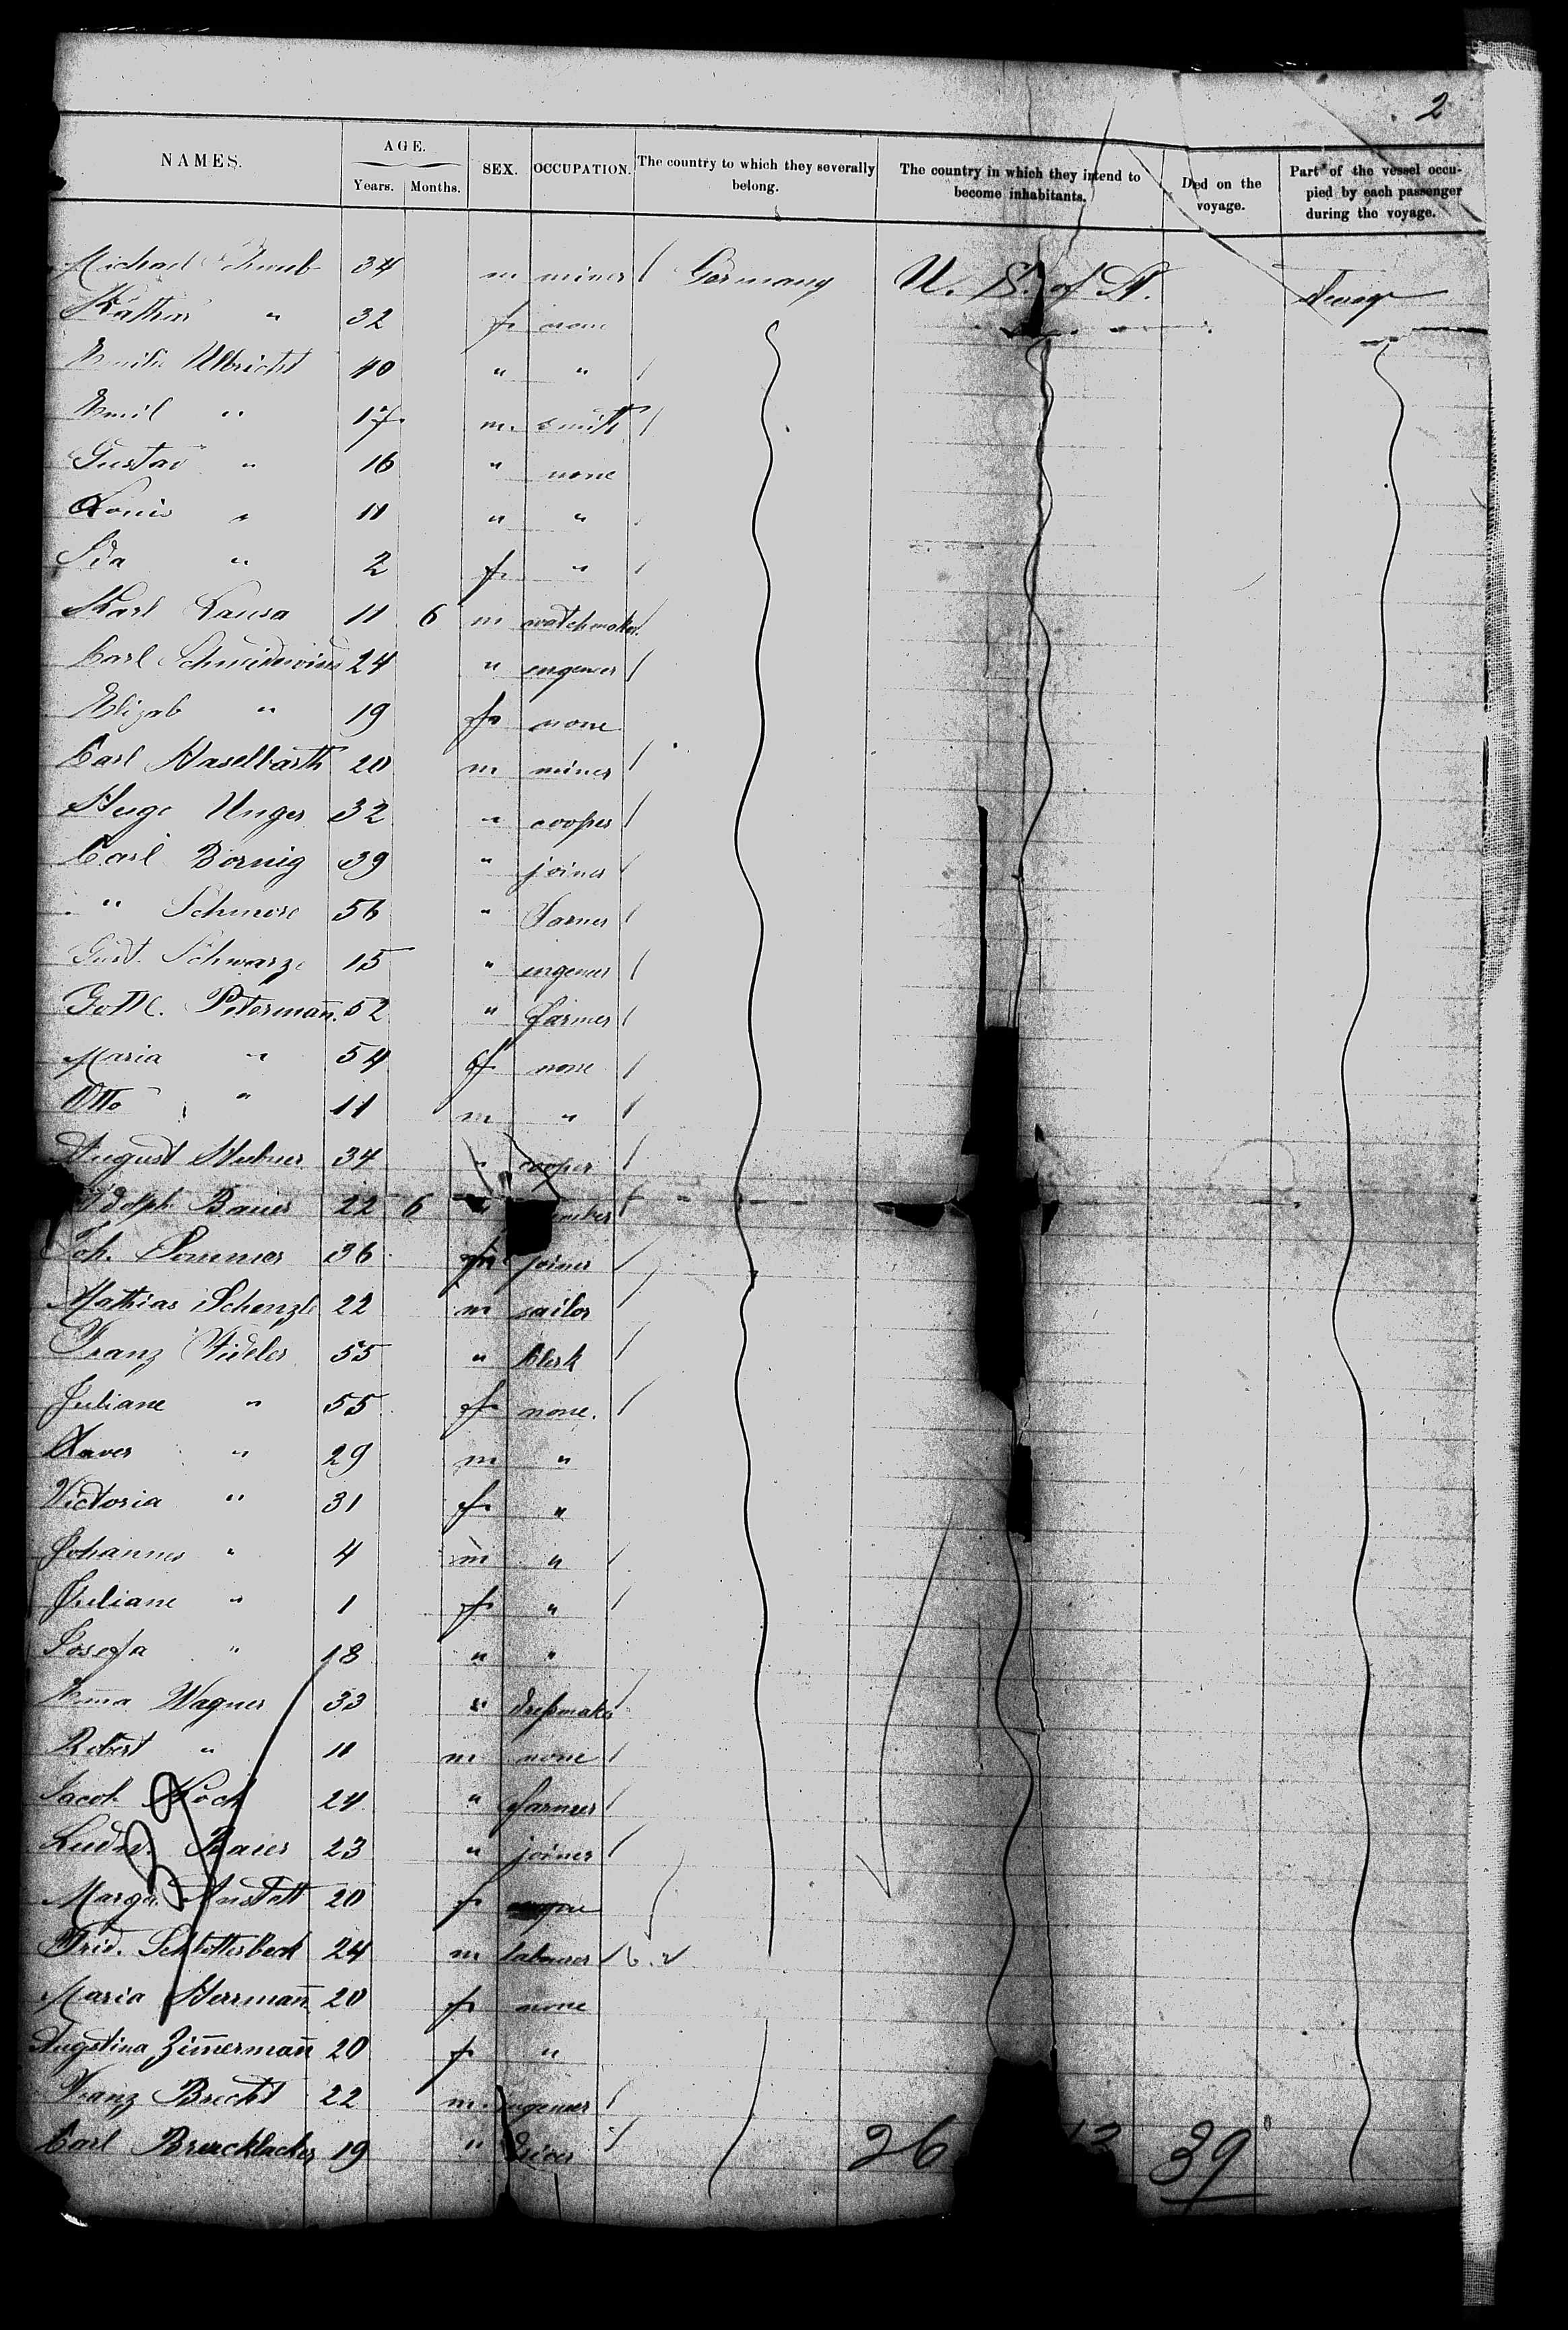 2
NAMES. AGE. SEX. OCCUPATION. The country to which they severally belong. The country in which they intend to become inhabitants. Died on the voyage. Part of the vessel occupied by each passenger during the voyage.
Years. Months.
Michael 34 m miner Germany U. S. of A.
" 32 f none
Ulbricht 40 " "
Emil " 17 m.
Gustav " 16 " none
Louis " 11 " "
Ida " 2 f "
Karl 11 6 m watchmaker
Carl 24 " engeneer
Elizab " 19 f none
Carl Haselbarth 20 m miner
Hugo Unger 32 " cooper
Carl Bornig 39 " joiner
" 56 " Farmer
Gust. Schwarze 15 " engeneer
Gottl. Petermañ. 52 " farmer
Maria " 54 f none
Otto " 11 m "
August Hubner 34 " cooper
Adolph Bauer 22 6 "
Joh. 36 joiner
Mathias Schenzle 22 m sailor
Franz Fideler 55 " Clerk
Juliane " 55 f none.
Xaver " 29 m "
Victoria " 31 f "
Johannes " 4 m "
Juliane " 1 f "
Josefa " 18 " "
Em̄a Wagner 33 " dressmaker
Robert " 11 m none
Jacob Koch 24 " farmer
Ludw. Bauer 23 " joiner
39
20 f
Frid. Schlotterbeck 24 m labourer
Maria Herrmañ 20 f none
Augstina Zim̄ermañ 20 f "
Franz Brecht 22 m. engeneer
Carl 19 "
26 39